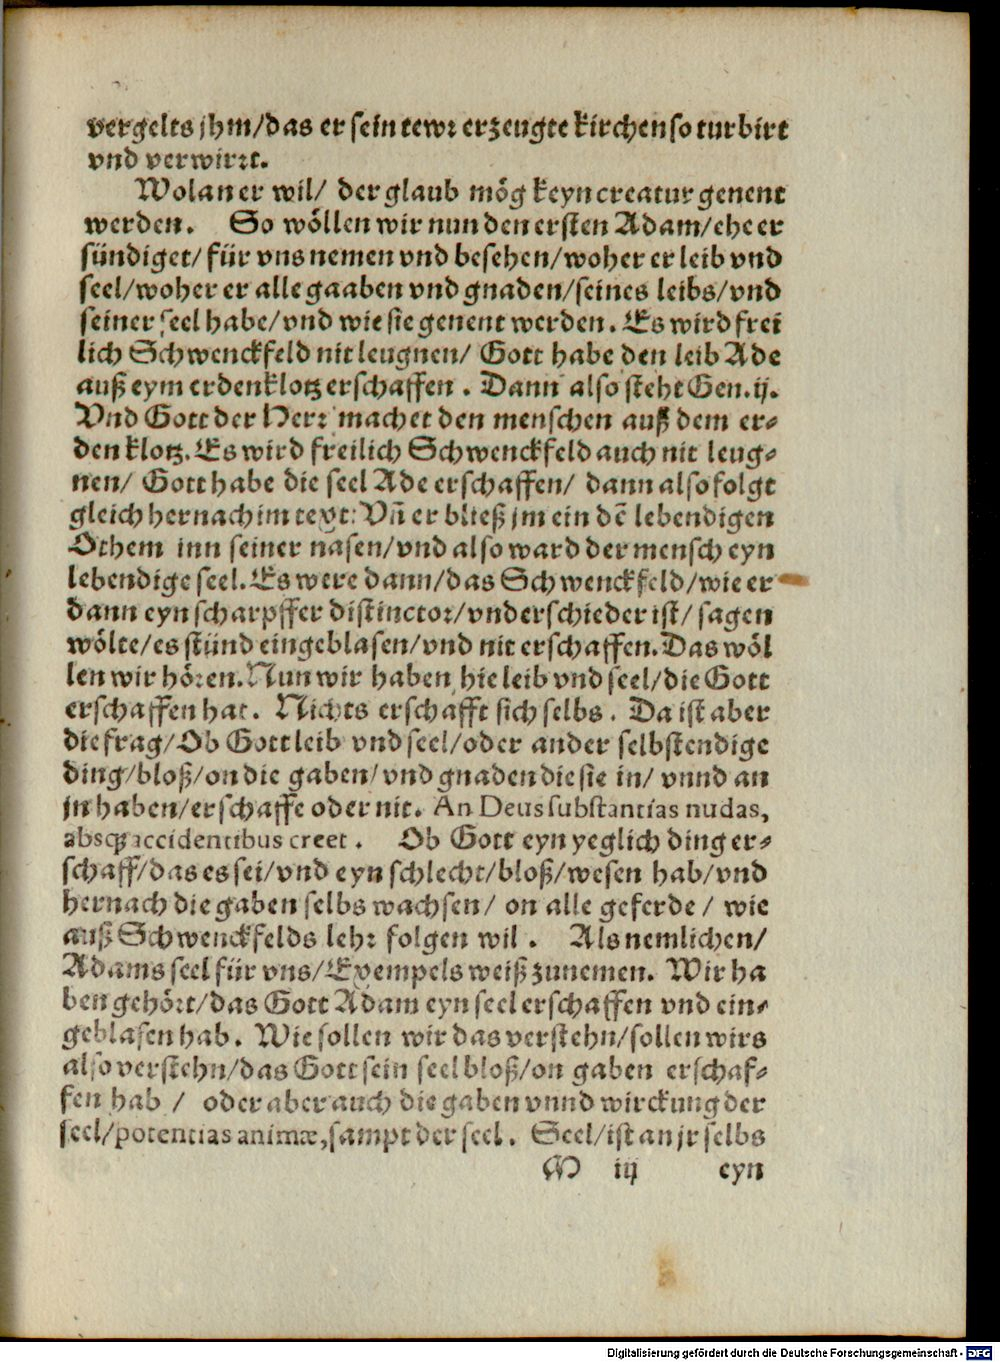 vergelts jhm/das er sein tewr erzeugte kirchen so turbirt
vnd verwirrt.
Wolan er wil/ der glaub mög keyn creatur genent
werden. So wöllen wir nun den ersten Adam/ehe er
sündiget/für vns nemen vnd besehen/woher er leib vnd
seel/woher er alle gaaben vnd gnaden/seines leibs/vnd
seiner seel habe/vnd wie sie genent werden. Es wird frei
lich Schwenckfeld nit leugnen/ Gott habe den leib Ade
auß eym erdenklotz erschaffen. Dann also steht Gen.ij.
Vnd Gott der Herr machet den menschen auß dem er-
den klotz. Es wird freilich Schwenckfeld auch nit leug-
nen/ Gott habe die seel Ade erschaffen/ dann also folgt
gleich hernach im text: Vñ er bließ jm ein dē lebendigen
Othem inn seiner nasen/vnd also ward der mensch eyn
lebendige seel. Es were dann/das Schwenckfeld/wie er
dann eyn scharpffer distinctor/vnderschieder ist/ sagen
wölte/es stünd eingeblasen/vnd nit erschaffen. Das wöl
len wir hören. Nun wir haben hie leib vnd seel/die Gott
erschaffen hat. Nichts erschafft sich selbs. Da ist aber
die frag/Ob Gott leib vnd seel/oder ander selbstendige
ding/bloß/on die gaben/vnd gnaden die sie in/ vnnd an
jn haben/erschaffe oder nit. An Deus substantias nudas,
absq; accidentibus creet. Ob Gott eyn yeglich ding er-
schaff/das es sei/vnd eyn schlecht/bloß/wesen hab/vnd
hernach die gaben selbs wachsen/ on alle geferde/ wie
auß Schwenckfelds lehr folgen wil. Als nemlichen/
Adams seel für vns/Exempels weiß zunemen. Wir ha
ben gehört/das Gott Adam eyn seel erschaffen vnd ein-
geblasen hab. Wie sollen wir das verstehn/sollen wirs
also verstehn/das Gott sein seel bloß/on gaben erschaf-
fen hab/ oder aber auch die gaben vnnd wirckung der
seel/potentias animæ, sampt der seel. Seel/ist an jr selbs
M iij eyn
Digitalisierung gefördert durch die Deutsche Forschungsgemeinschaft - DFG